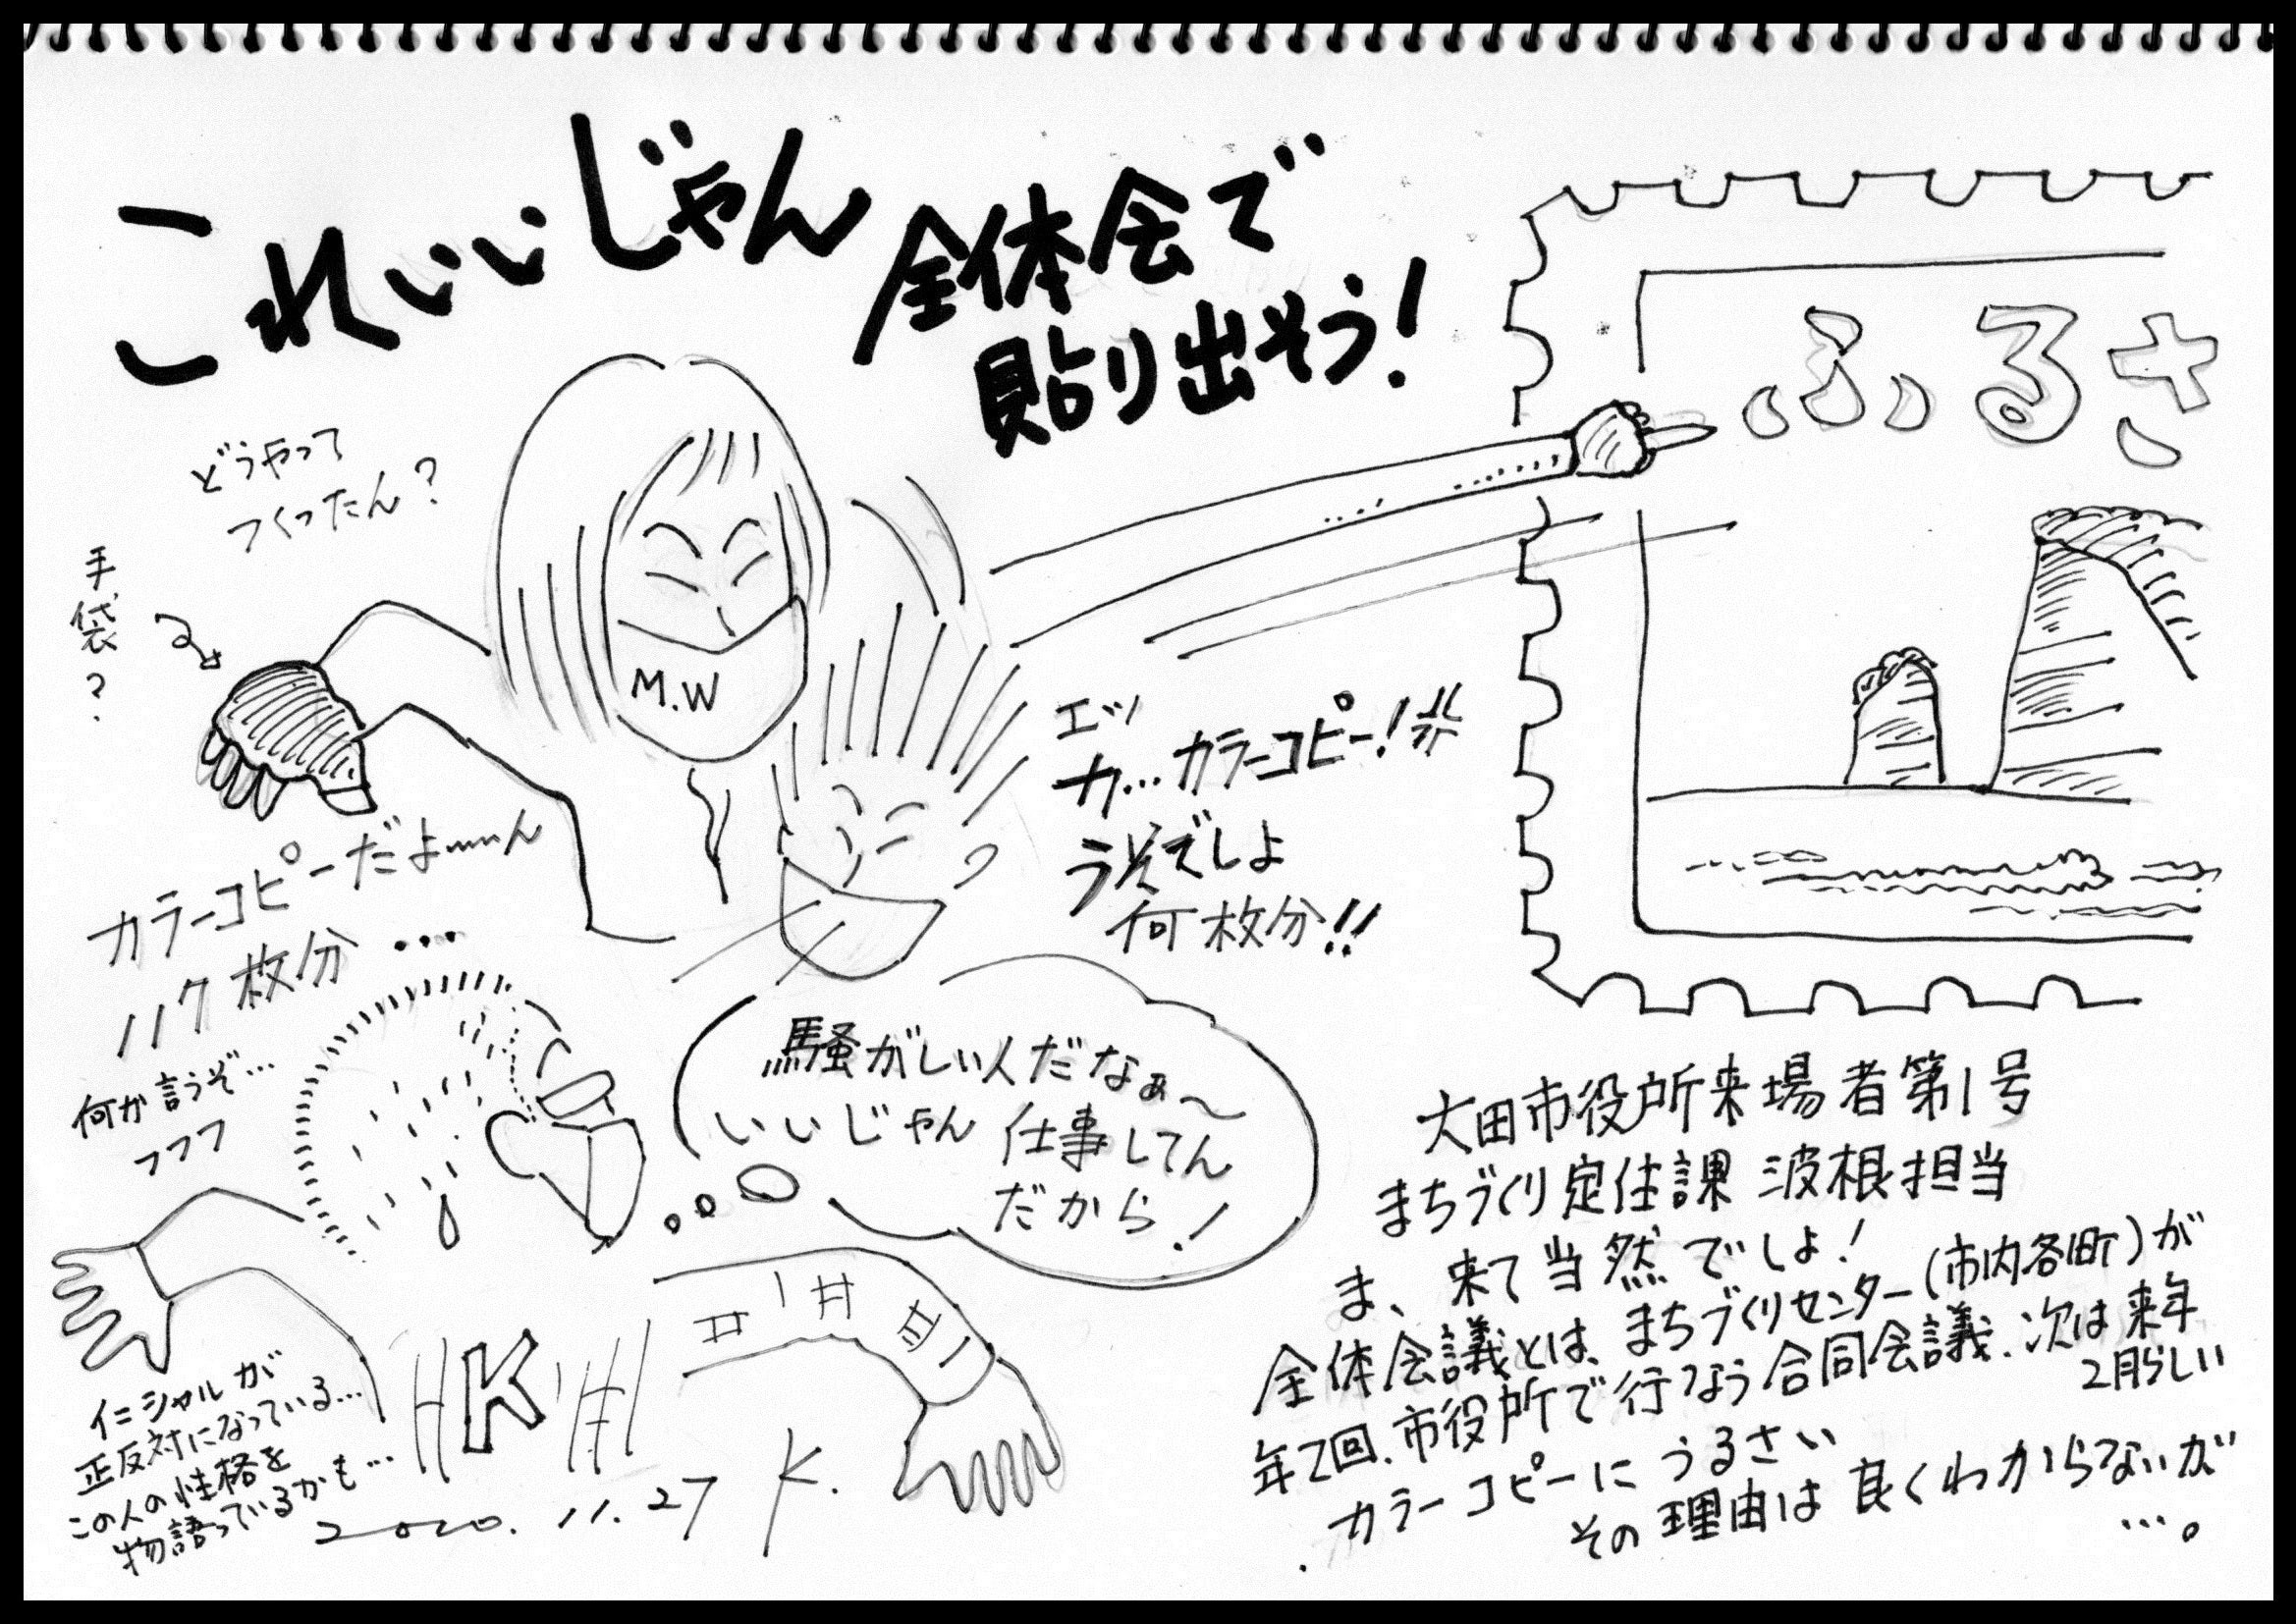 これいいじゃん
全体会で
貼り出そう!
ふるさ
どうやって
つくったん?
手袋?
M.W
エッ
カ…カラーコピー!
うそでしょ
何枚分!!
カラーコピーだよ〰ん
117枚分…
何か言うぞ…
フフフ
騒がしい人だなぁ～
いいじゃん 仕事してん
だから!
大田市役所来場者第1号
まちづくり定住課 波根担当
ま、来て当然でしょ!
全体会議とは、まちづくりセンター(市内各町)が
年2回、市役所で行なう合同会議. 次は来年
2月らしい
カラーコピーにうるさい
その理由は良くわからないが
…。
K
イニシャルが
正反対になっている…
この人の性格を
物語っているかも…
2020.11.27 K.